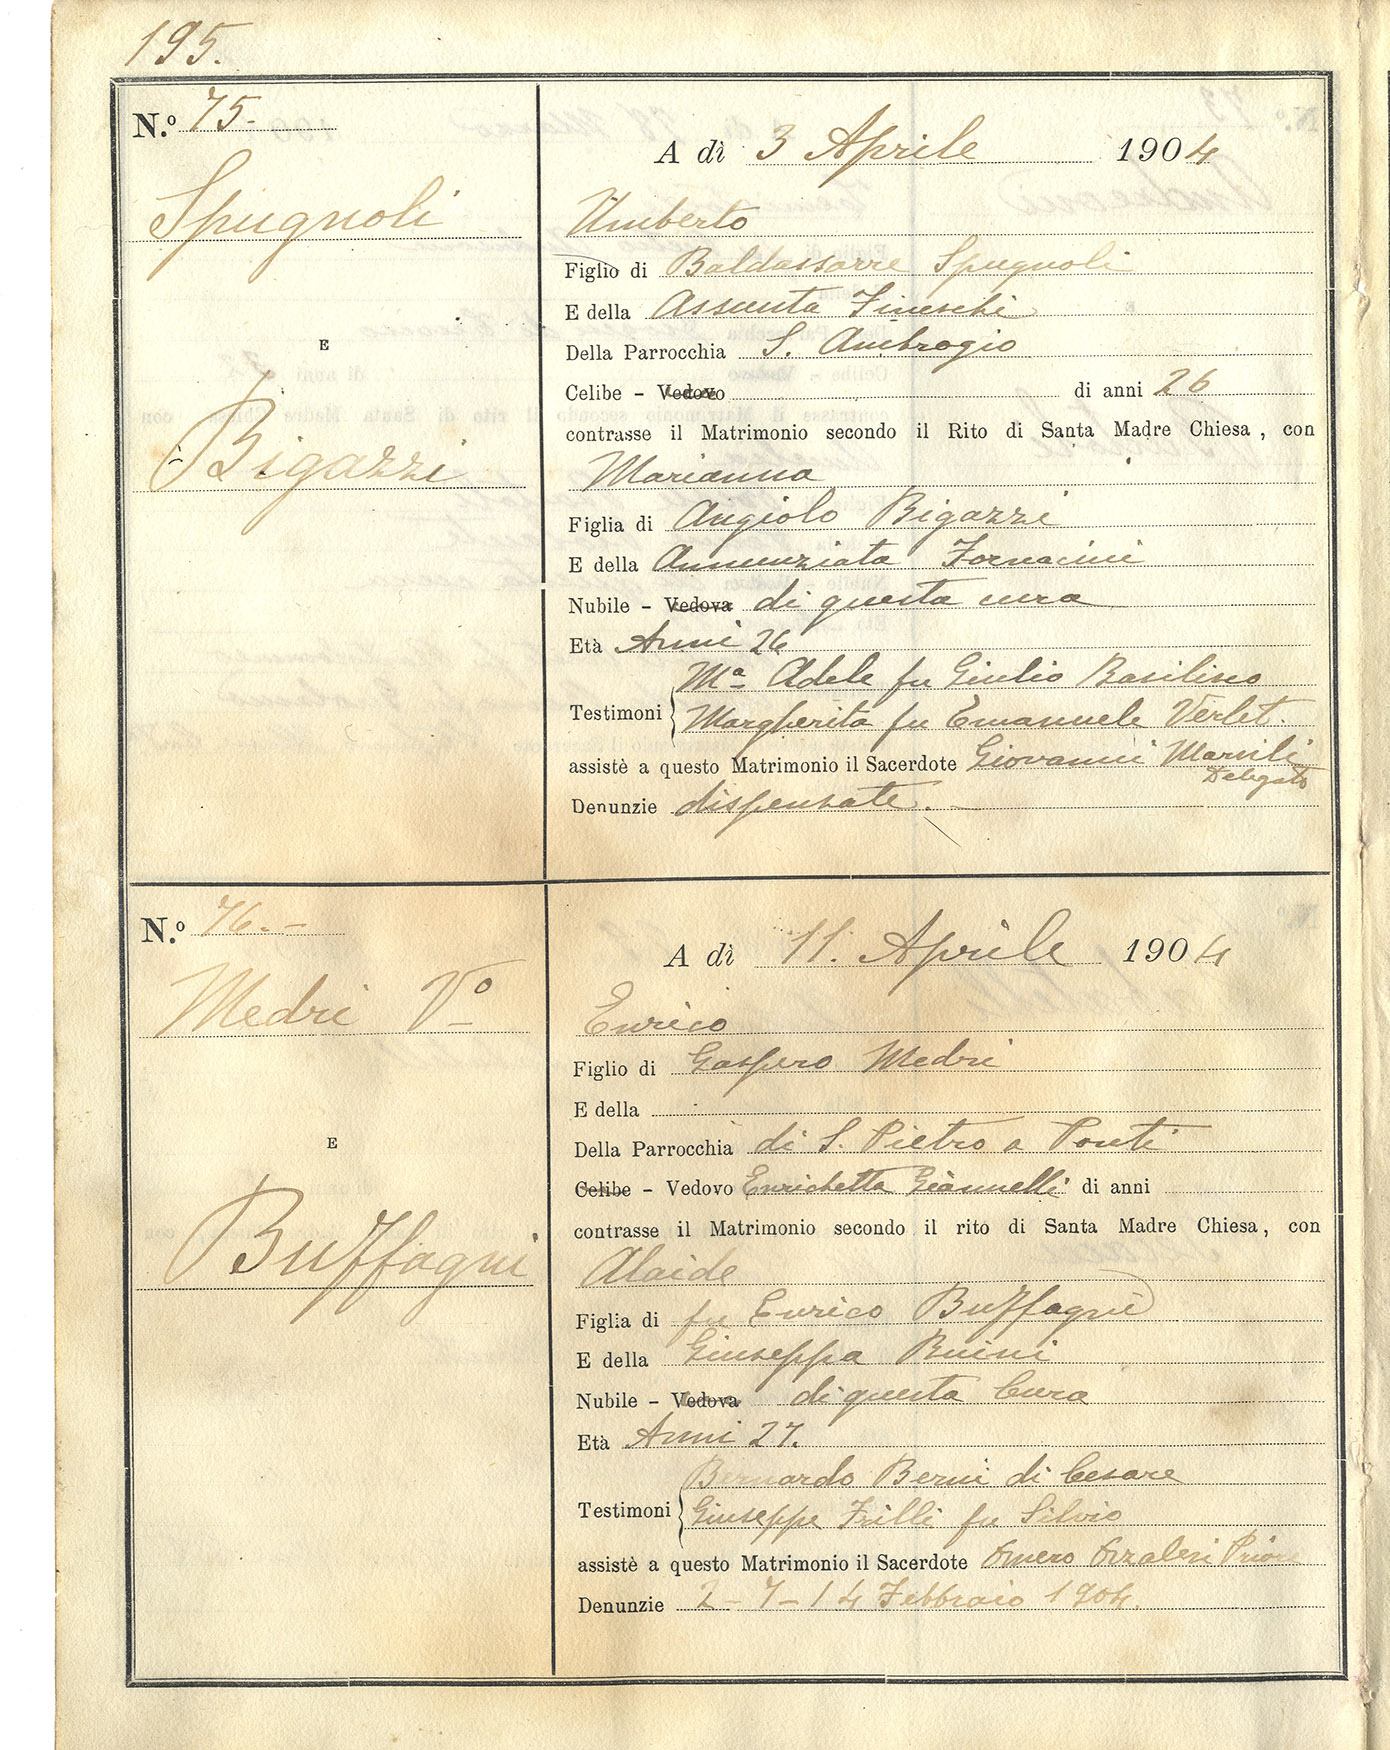 195.
N.º 75.
Spugnoli
E
Bigazzi
A dì 3 Aprile 1904
Umberto
Figlio di Baldassarre Spugnoli
E della Assunta Fineschi
Della Parrocchia S. Ambrogio
Celibe – Vedovo di anni 26
contrasse il Matrimonio secondo il Rito di Santa Madre Chiesa, con
Marianna
Figlia di Angiolo Bigazzi
E della Annunziata Fornacini
Nubile – Vedova di questa cura
Età Anni 26
Mª Adele fu Giulio Basilisco
Testimoni Margherita fu Emanuele Verlet.
assistè a questo Matrimonio il Sacerdote Giovanni
Delegato
Denunzie dispensate.
N.º 76.–
Medri Vº
E
Buffagni
A dì 11. Aprile 1904
Enrico
Figlio di Gaspero Medri
E della
Della Parrocchia di S. Pietro a Ponti
Celibe – Vedovo Enrichetta Giannelli di anni
contrasse il Matrimonio secondo il rito di Santa Madre Chiesa, con
Alaide
Figlia di fu Enrico Buffagni
E della Giuseppa Buini
Nubile – Vedova di questa Cura
Età Anni 27.
Bernardo Berni di Cesare
Testimoni Giuseppe Frilli fu Silvio
assistè a questo Matrimonio il Sacerdote Omero Orzalesi Priore
Denunzie 2 – 7 – 14 Febbraio 1904.